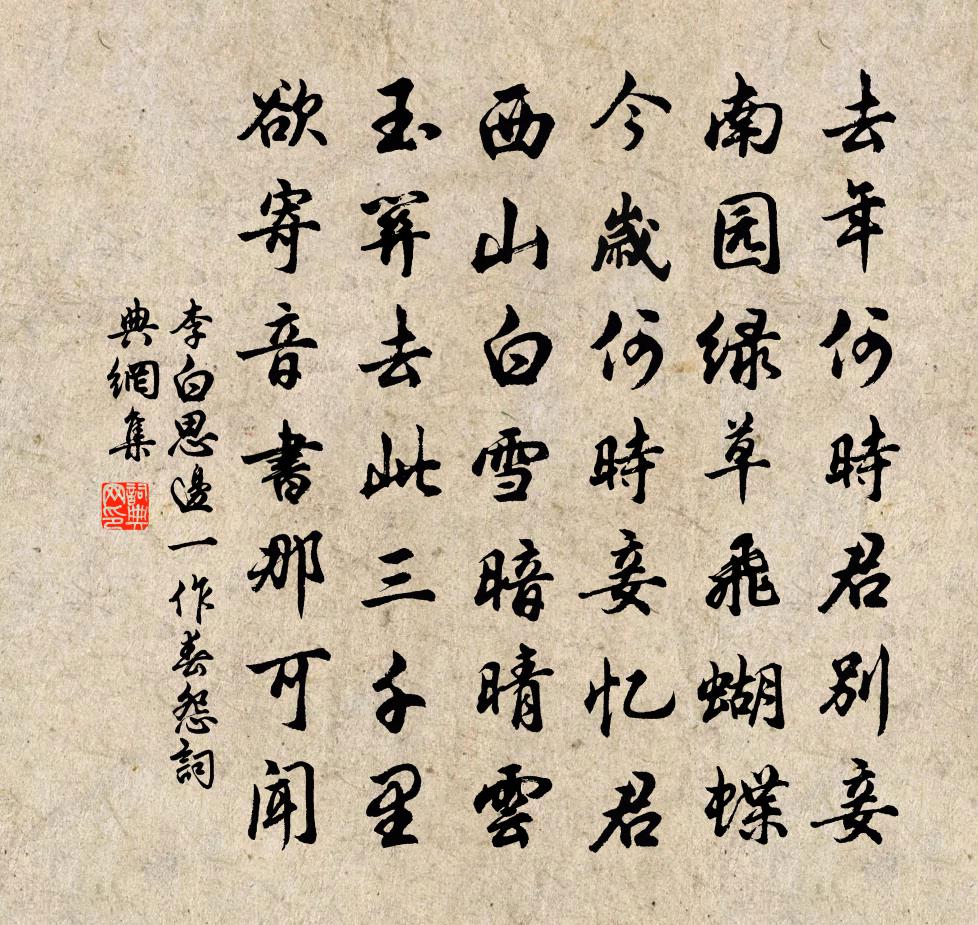 去年何時君別妾
南园绿草飛蝴蝶
今歲何時妾忆君
西山白雪暗晴雲
玉関去此三千里
欲寄音書那可聞
李白思邊一作春怨詞
典網集
詞典網印